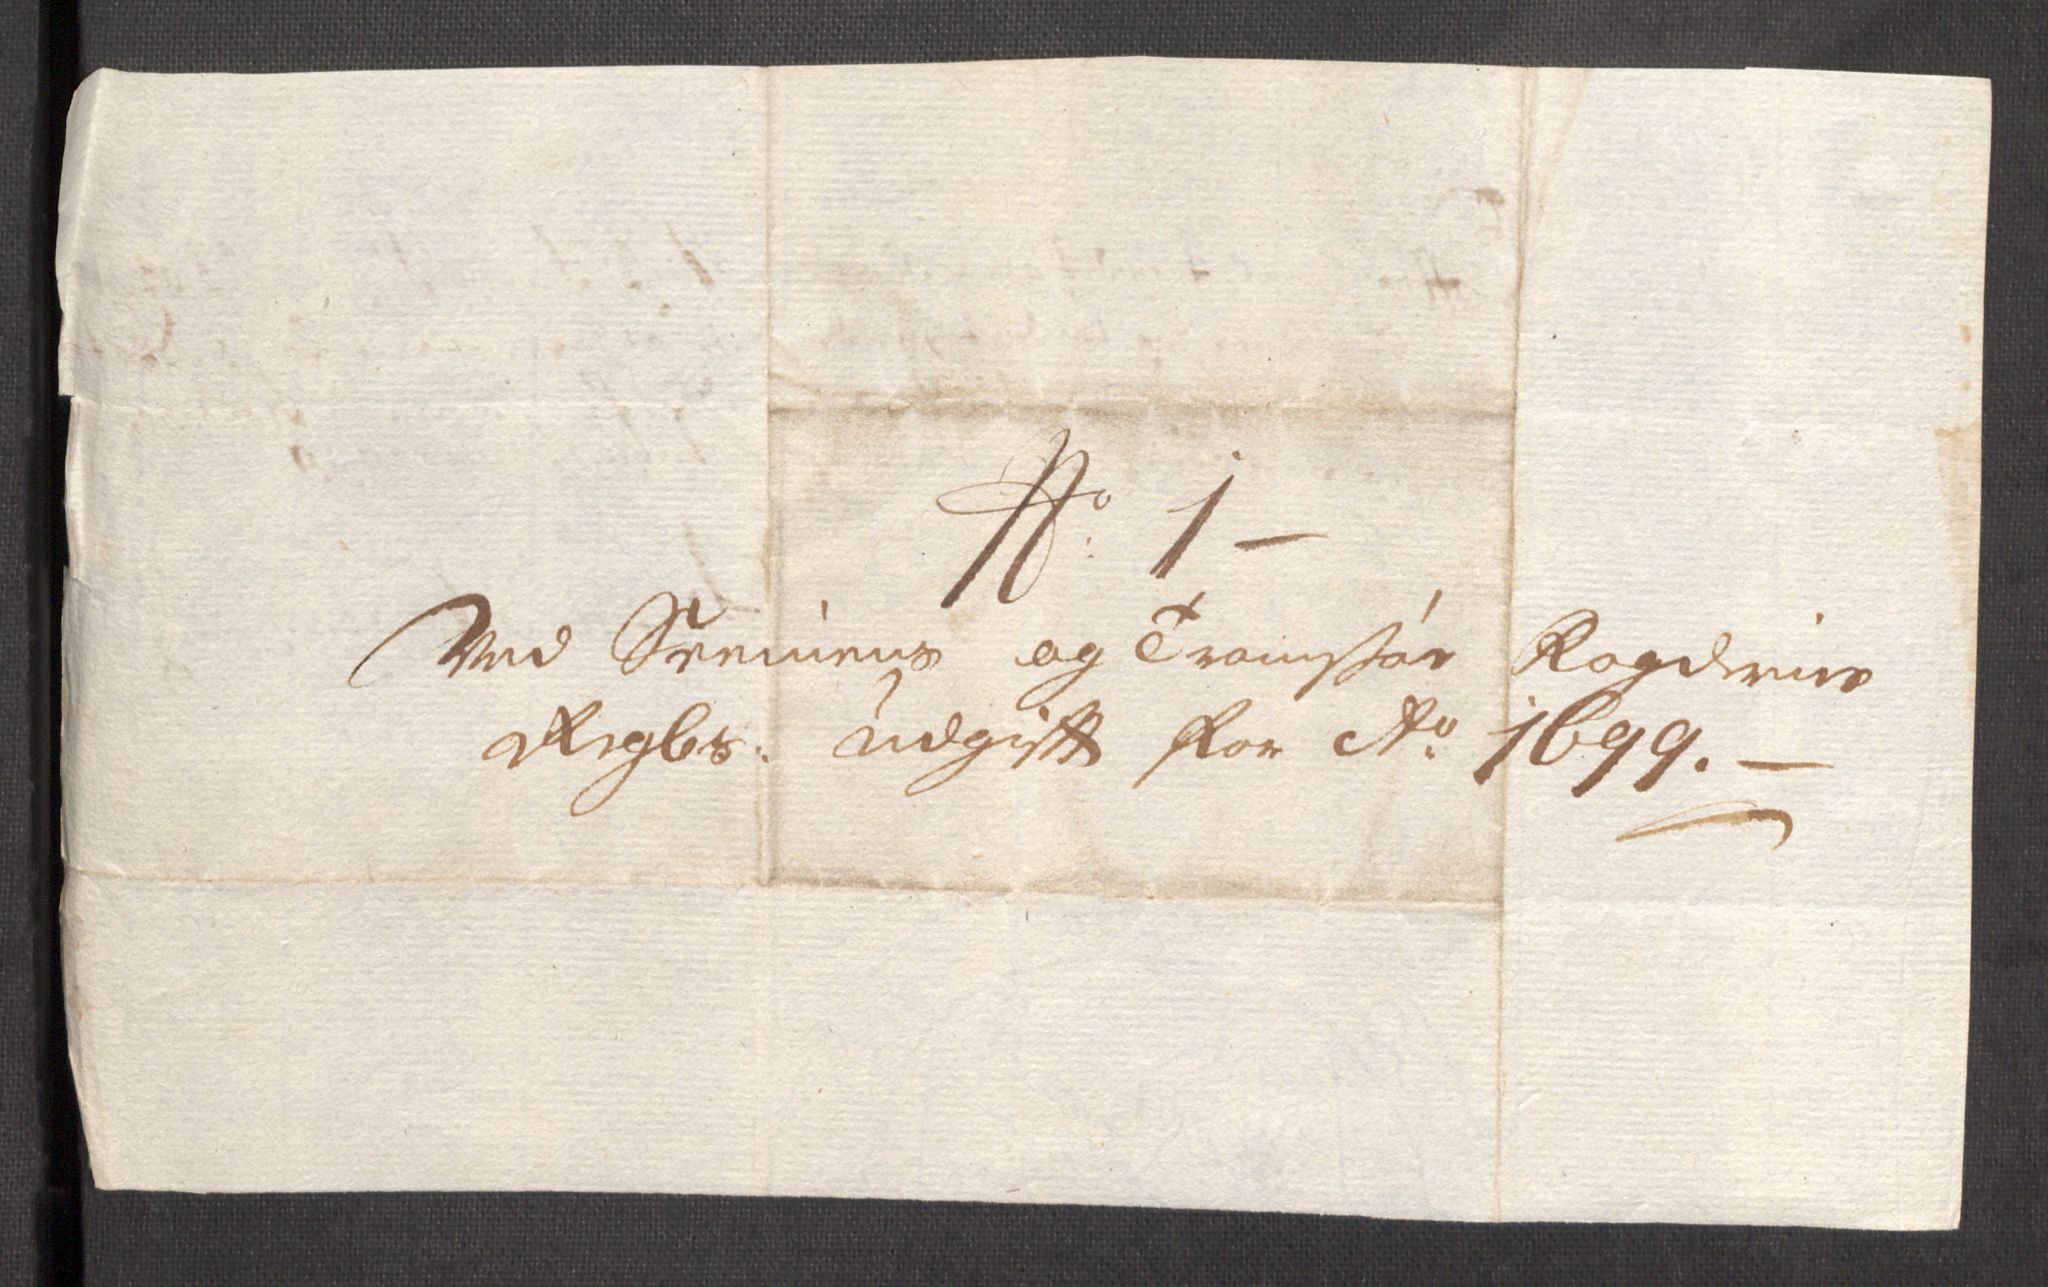 No. 1 —
Ved Senniens og Tromsøes Fogderies
Regbs: Udgift for Ao. 1699. —